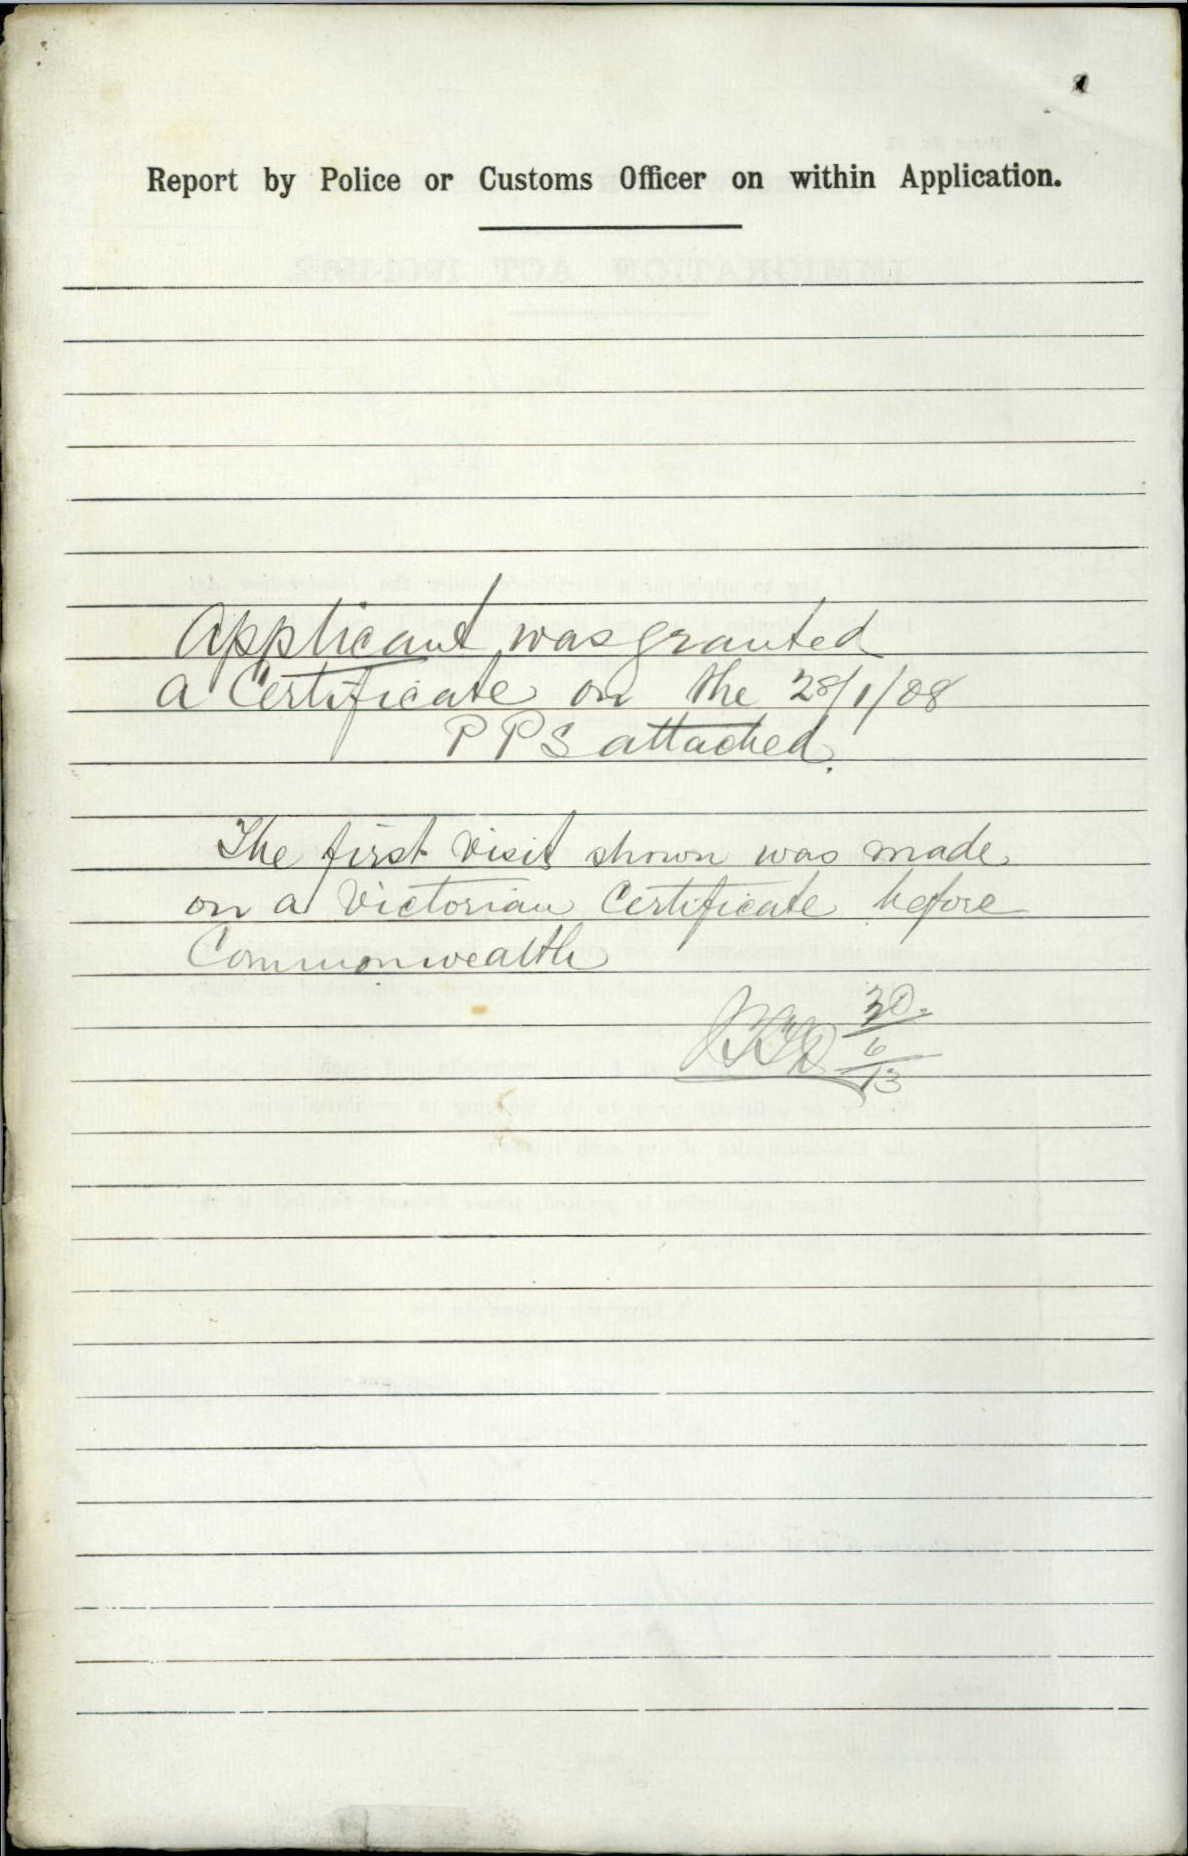 Report by Police or Customs Officer on within Application.
Applicant was granted
a Certificate on the 28/1/08
PPS attached.
The first visit shown was made
on a Victorian Certificate before
Commonwealth
30/6/13